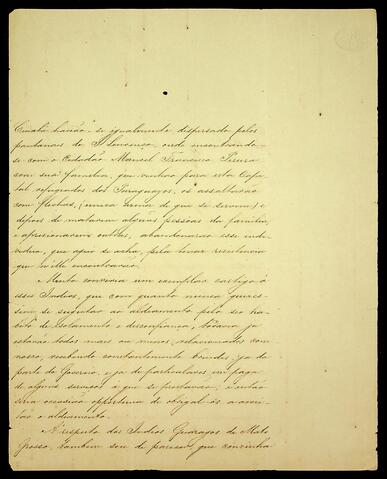 Cuiabá havião-se igualmente dispersado pelos
pantanaes do S. Lourenço, onde encontrando-
se com o Cidadão Manoel Francisco
com sua familia, que vinhão para esta Capi-
tal refugiados dos Paraguayos, os assaltarão
com flechas, (unica arma de que se servem) e
depois de matarem algumas pessoas da familia,
e aprisionarem outras, abandonarão esse indi-
viduo, que aqui se acha, pela tenaz resistencia
que n'elle encontrarão.
Muito conviria um exemplar castigo á
esses Indios, que com quanto nunca quizes-
sem se sugeitar ao aldeamento pelo seo ha-
bito de isolamento e desconfiança, todavia já
estavão todos mais ou menos relacionados com-
nosco, recebendo constantemente brindes, já da
parte do Governo, e já de particulares em paga
de alguns serviços á que se prestavão; e então
seria occasião opportuna de obrigal-os a accei-
tar o aldeamento.
A respeito dos Indios de Mato
Grosso, tambem sou de parecer, que convinha